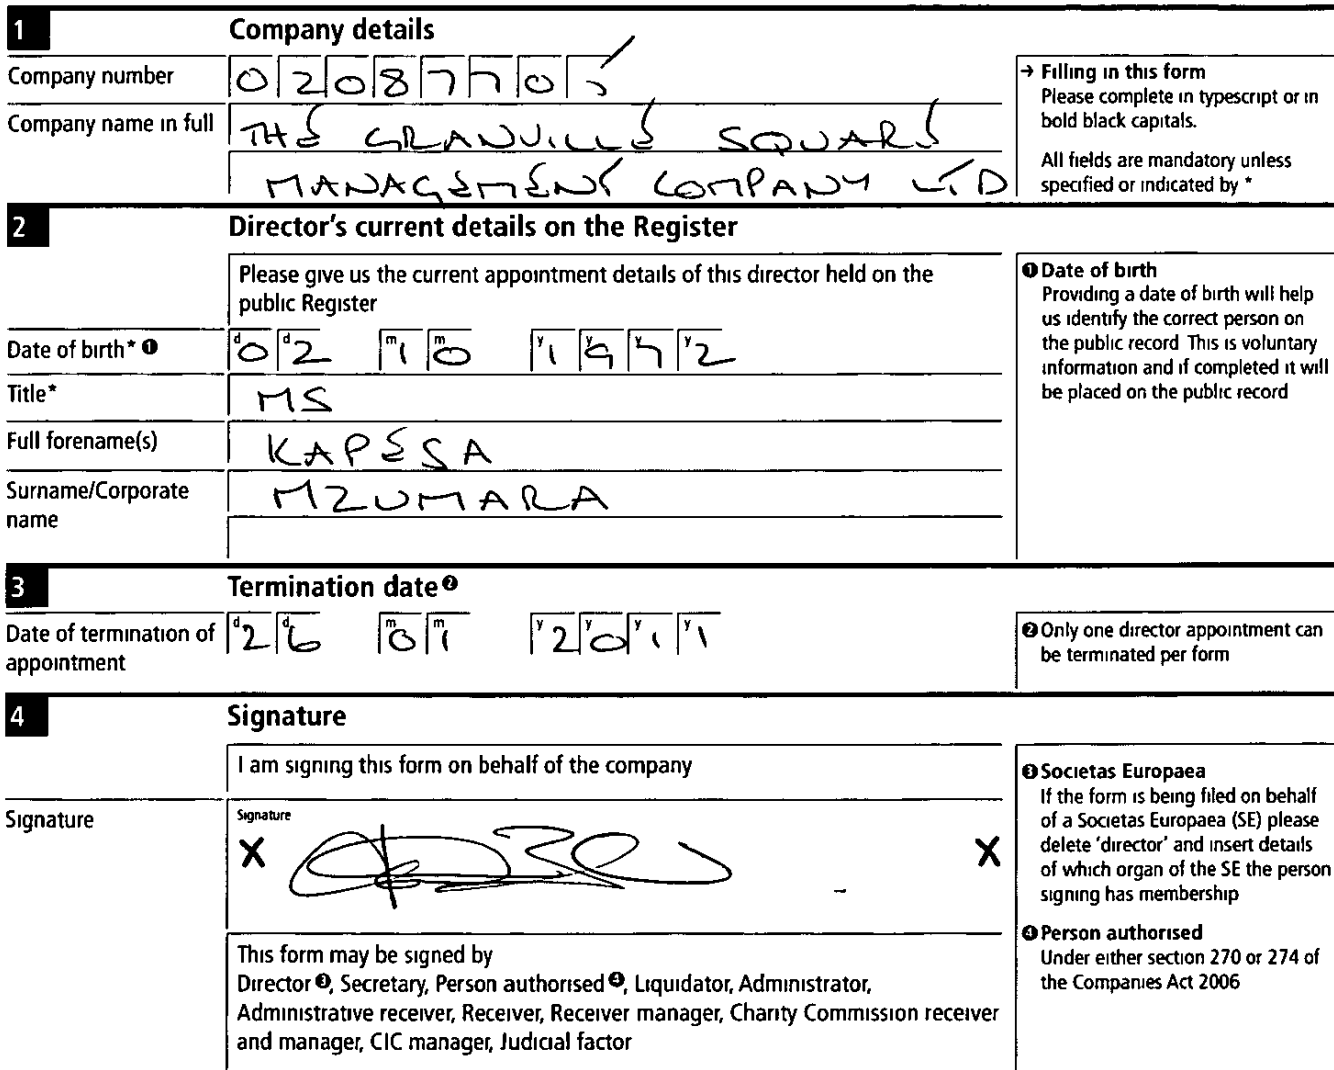 1 Company details
Company number 02087705
Company name in full THE GRANVILLE SQUARE
MANAGEMENT COMPANY LTD
→ Filling in this form
Please complete in typescript or in
bold black capitals.
All fields are mandatory unless
specified or indicated by *
2 Director's current details on the Register
Please give us the current appointment details of this director held on the
public Register
Date of birth* ❶ d0 d2 m1 m0 y1 y9 y7 y2
Title* MS
Full forename(s) KAPESA
Surname/Corporate
name MZUMARA
❶ Date of birth
Providing a date of birth will help
us identify the correct person on
the public record This is voluntary
information and if completed it will
be placed on the public record
3 Termination date ❷
Date of termination of
appointment d2 d6 m0 m1 y2 y0 y1 y1
❷ Only one director appointment can
be terminated per form
4 Signature
I am signing this form on behalf of the company
Signature
Signature
X X
This form may be signed by
Director ❸, Secretary, Person authorised ❹, Liquidator, Administrator,
Administrative receiver, Receiver, Receiver manager, Charity Commission receiver
and manager, CIC manager, Judicial factor
❸ Societas Europaea
If the form is being filed on behalf
of a Societas Europaea (SE) please
delete 'director' and insert details
of which organ of the SE the person
signing has membership
❹ Person authorised
Under either section 270 or 274 of
the Companies Act 2006